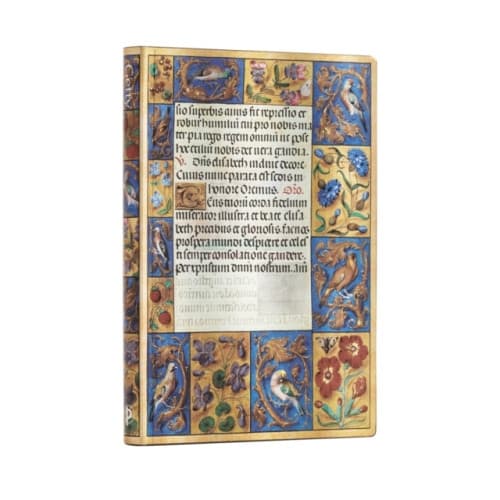 sio superbis fit repressio et
robur humiliū tu pro nobis ma
ter pia rogo regem omniū ut post
hoc exiliū nobis det uera gaudia.
V. Dn̄s elisabeth induit decore
Cuius nunc parata est sedis in
honore Oremus. Oro.
Tuorum corda fidelium
miserator illustra et beate elisa
beth precibus et gloriosis fac nos
prospera mundi despicere et celes
ti semper consolatione gaudere.
Per xpistum dn̄m nostrum. am̄